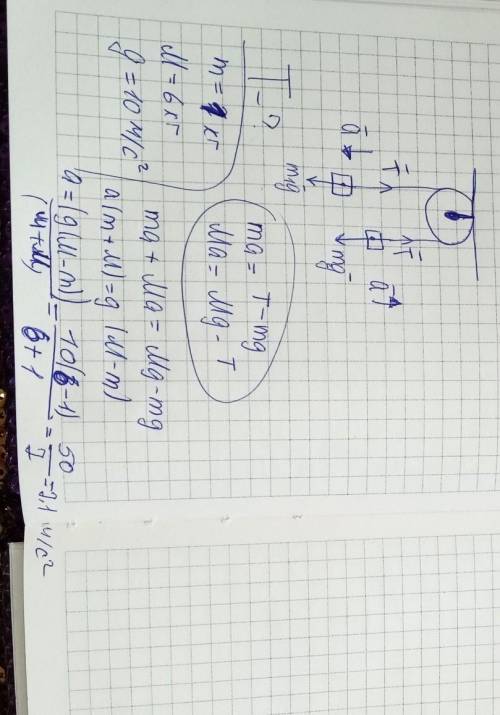 T - ?
m = 1 кг
M = 6 кг
g = 10 м/с²
a T T a
mg mg
ma = T - mg
Ma = Mg - T
ma + Ma = Mg - mg
a(m+M) = g (M-m)
a = (g(M-m))/(m+M) = 10(6-1)/6+1 = 50/7 = 7,1 м/с²